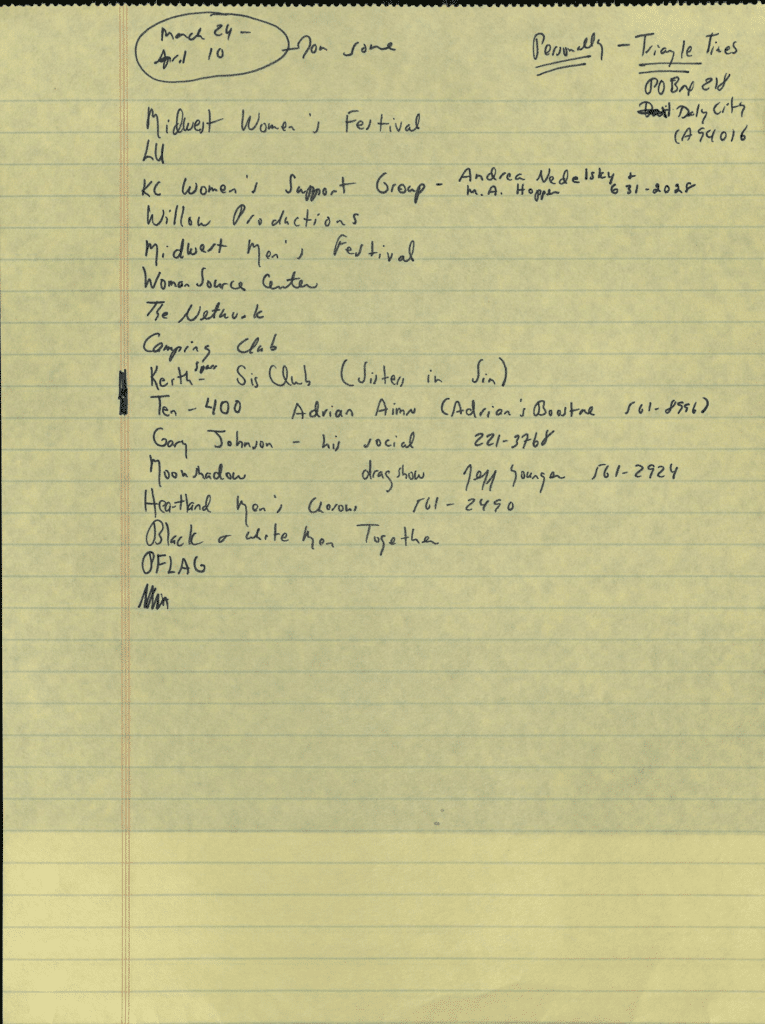 March 24 -
April 10
Personally - Triangle Times
PO Box 218
Daly City
CA 94016
Midwest Women's Festival
LU
KC Women's Support Group - Andrea Nedelsky +
M.A. Hopper 631-2028
Willow Productions
Midwest Men's Festival
Woman Source Center
The Network
Camping Club
Keith - Sis Club (Sisters in Sin)
Ten - 400 Adrian (Adrian's 561-8996)
Gary Johnson - his social 221-3768
Moonshadow drag show Jeff Younger 561-2924
Heartland Men's Chorus 561-2490
Black & White Men Together
PFLAG